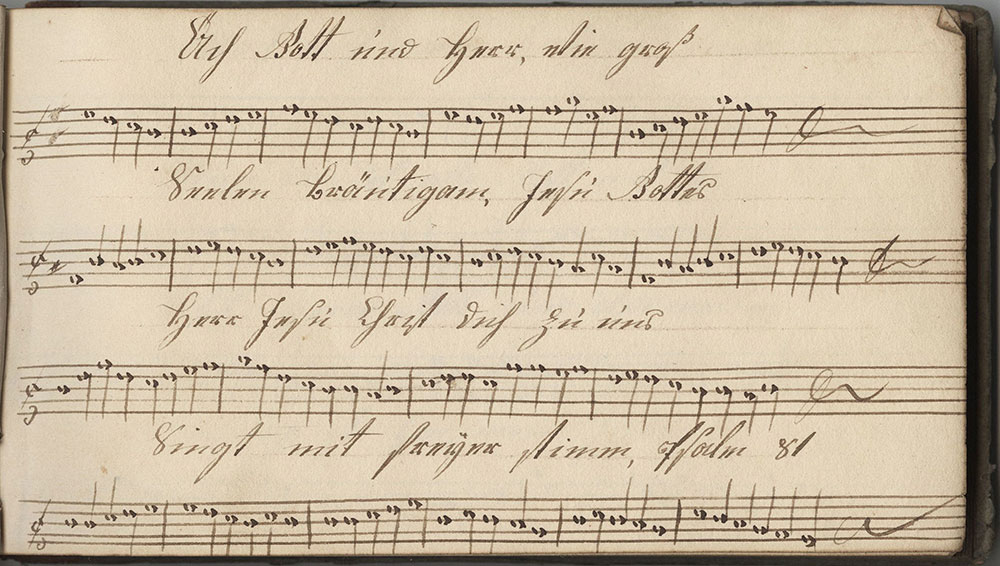 Ach Gott und Herr, wie groß
Seelen bräutigam, Jesu Gottes
Herr Jesu Christ dich zu uns
Singt mit freyer stimm, Psalm 81